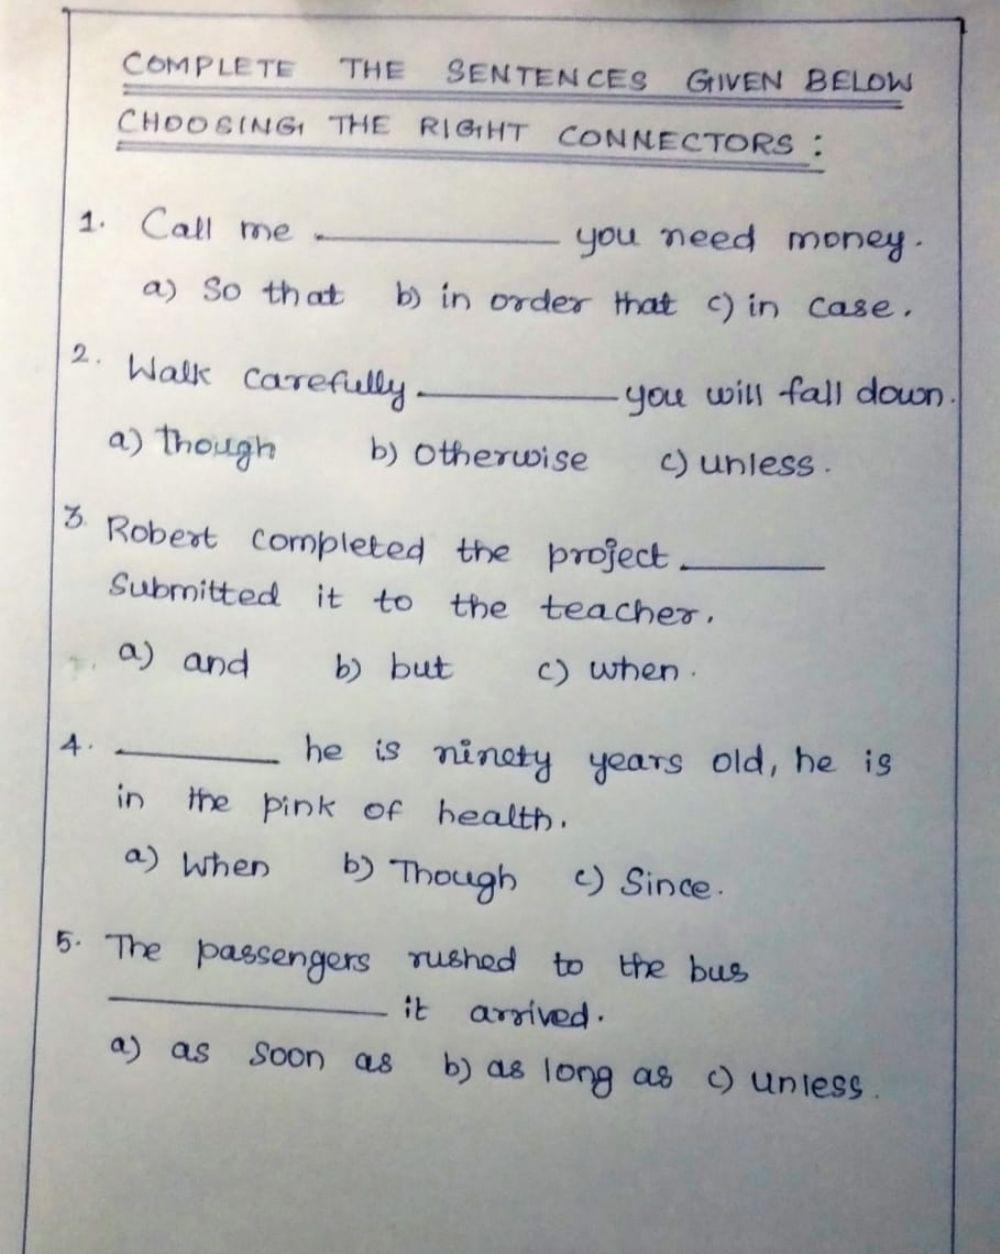 COMPLETE THE SENTENCES GIVEN BELOW
CHOOSING THE RIGHT CONNECTORS :
1. Call me __________ you need money.
a) So that b) in order that c) in case.
2. Walk carefully __________ you will fall down.
a) Though b) Otherwise c) unless.
3. Robert completed the project ________
Submitted it to the teacher.
a) and b) but c) when.
4. ________ he is ninety years old, he is
in the pink of health.
a) When b) Though c) Since.
5. The passengers rushed to the bus
__________ it arrived.
a) as soon as b) as long as c) unless.